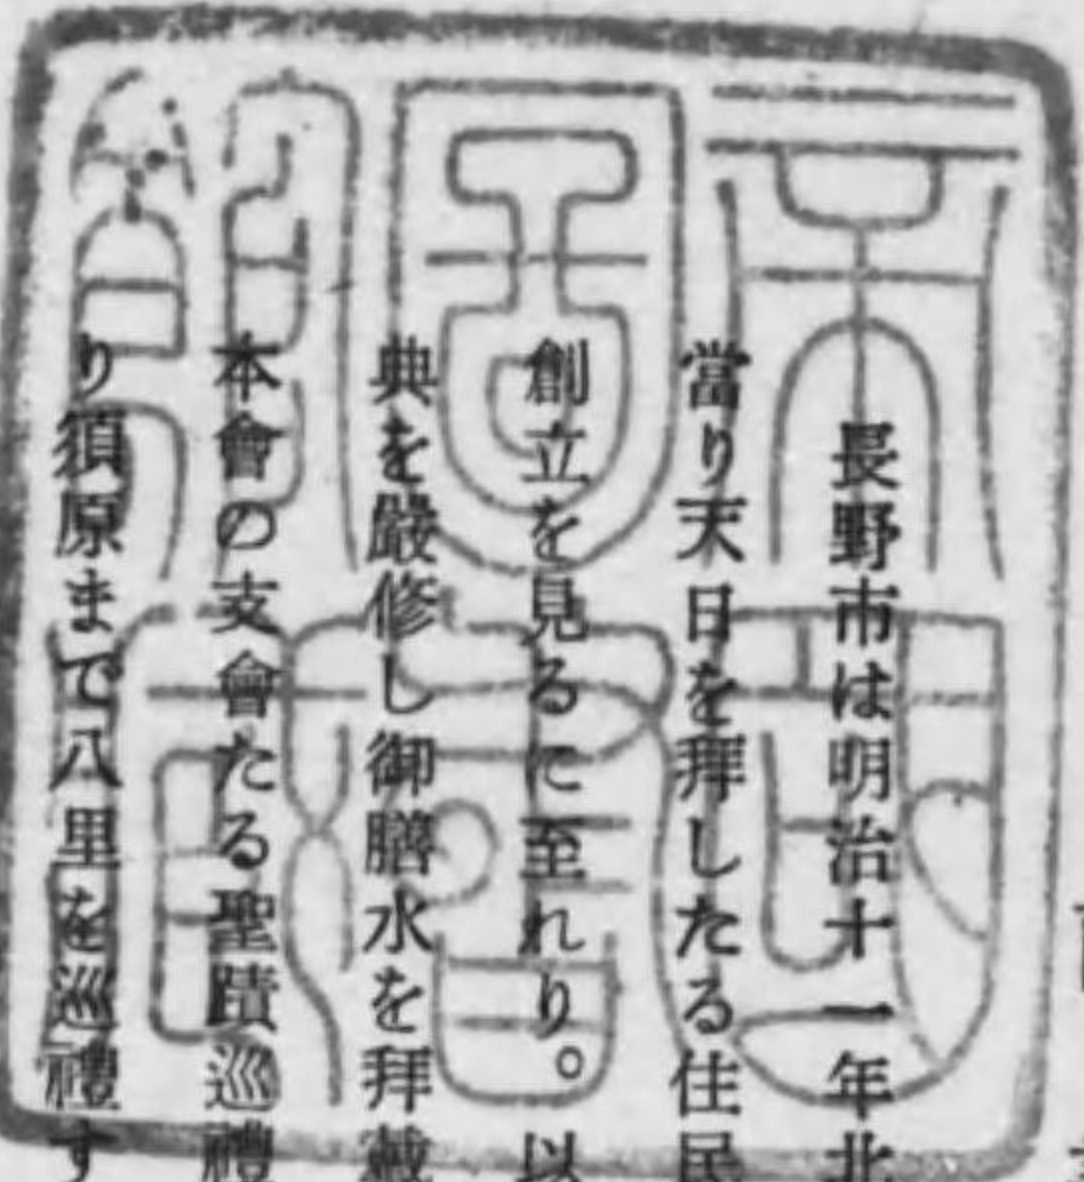 長野市は明治十一年北
當り天日を拜したる住民
創立を見るに至れり。以
典を嚴修し御膳水を拜戴
本會の支會たる聖蹟巡禮
り須原まで八里を巡禮す